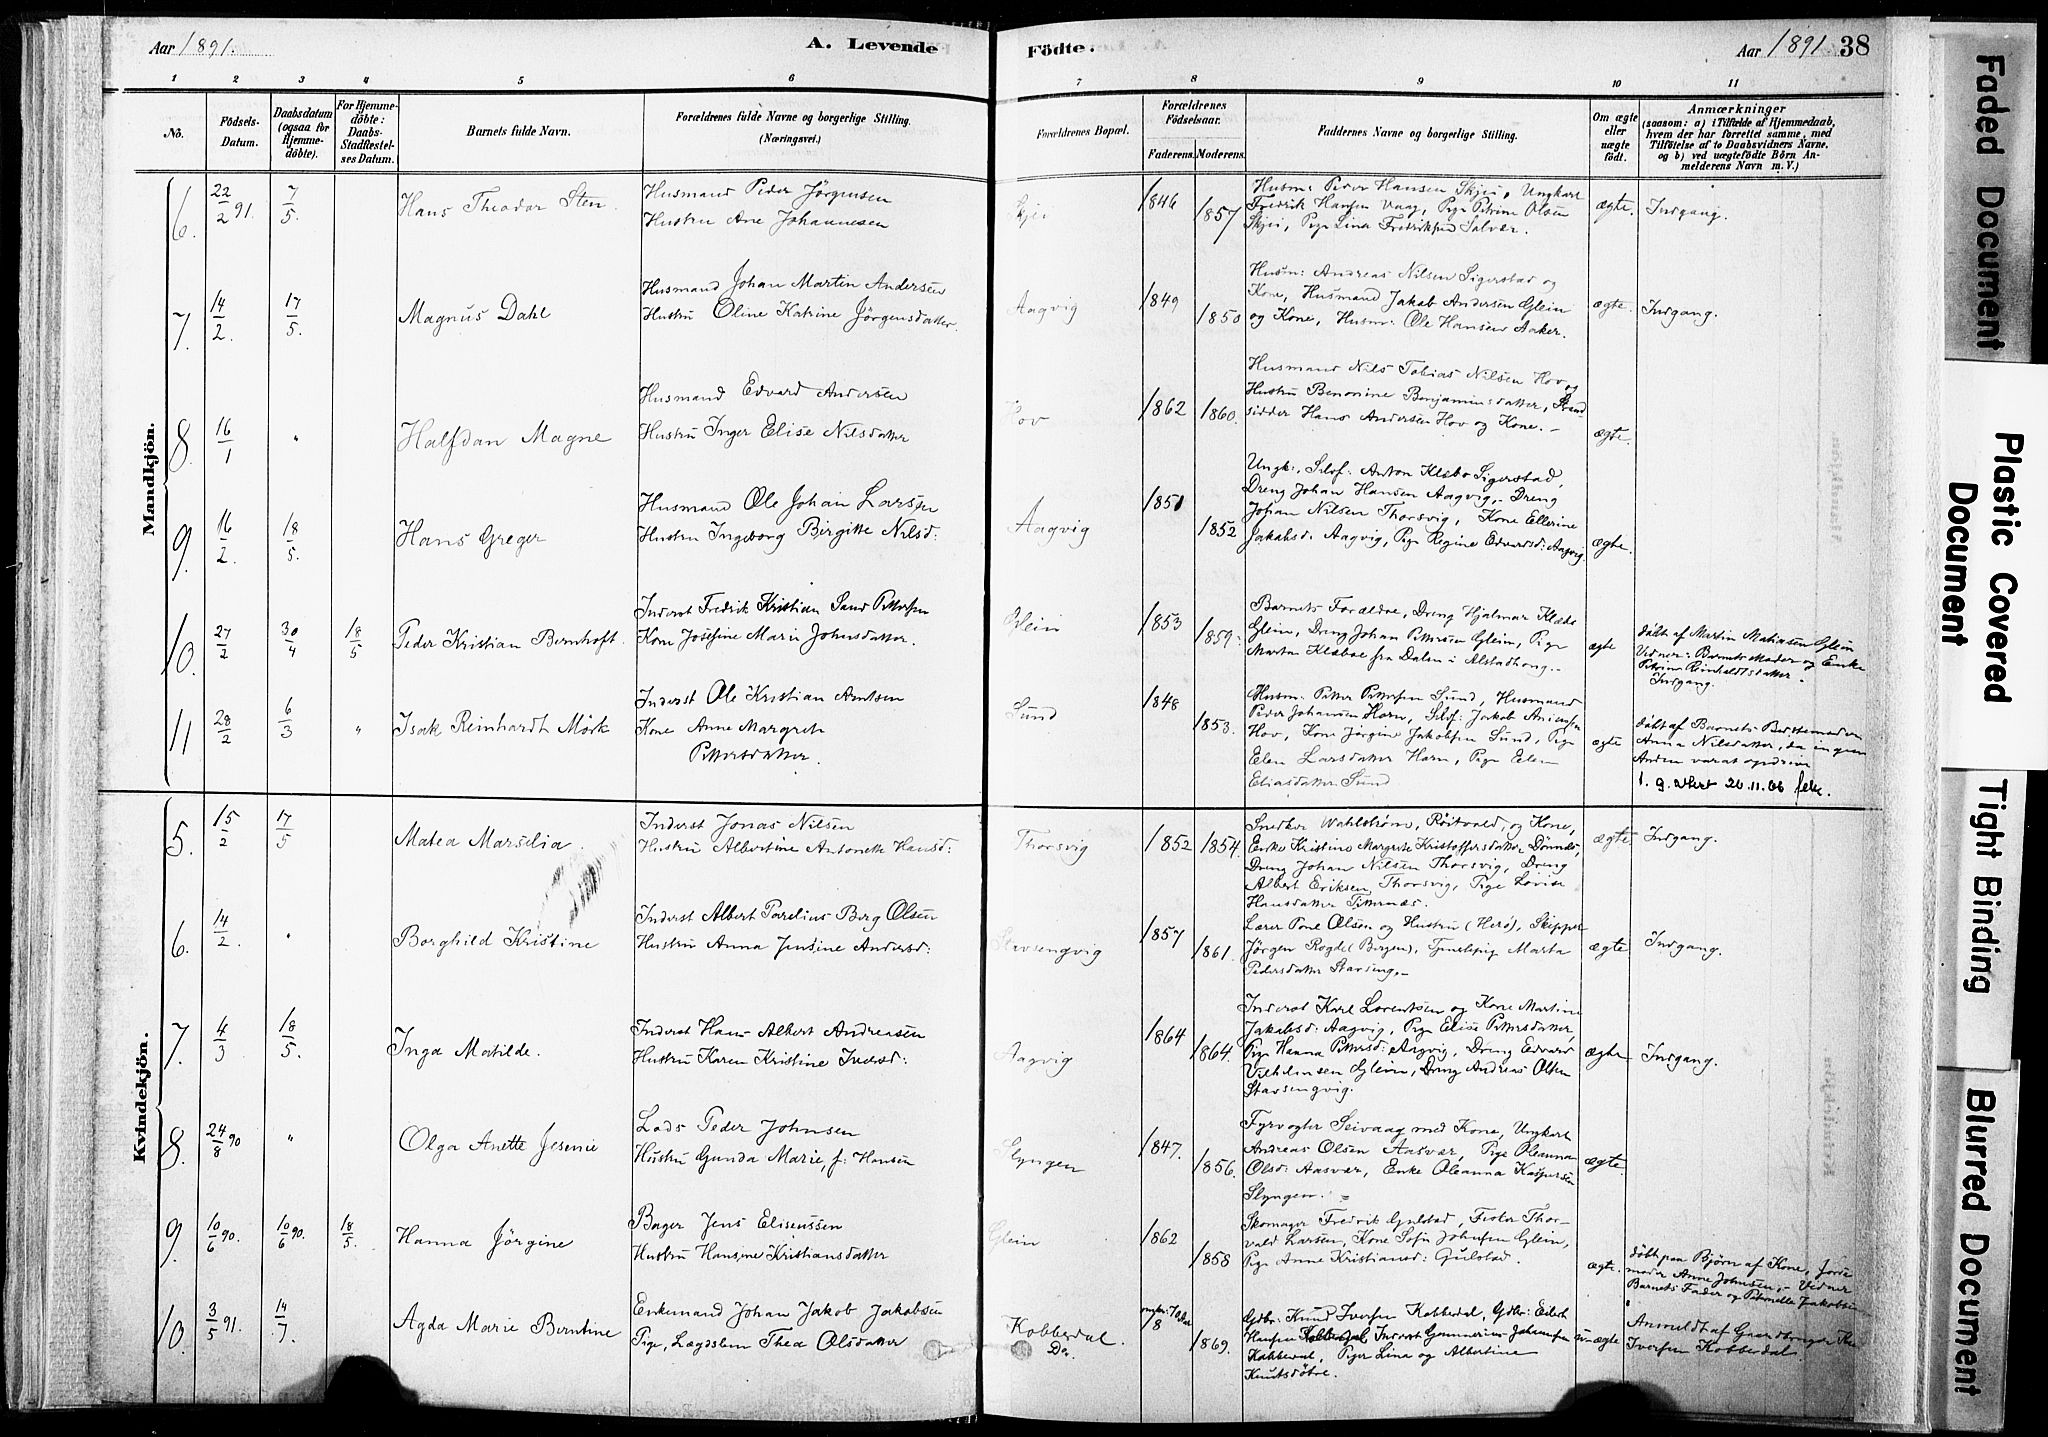 Aar 1891.
A. Levende
Födte.
Aar 1891. 38
1 2 3 4 5 6 7 8 9 10 11
No.
Födsels-
Datum.
Daabsdatum
(ogsaa for
Hjemme-
döbte).
For Hjemme-
döbte:
Daabs-
Stadfæstel-
ses Datum.
Barnets fulde Navn.
Forældrenes fulde Navne og borgerlige Stilling.
(Næringsvei.)
Forældrenes Bopæl.
Forældrenes
Födselsaar.
Faderens. Moderens.
Faddernes Navne og borgerlige Stilling.
Om ægte
eller
uægte
födt.
Anmærkninger
(saasom: a) i Tilfælde af Hjemmedaab,
hvem der har forrettet samme, med
Tilföielse af to Daabsvidners Navne.
og b) ved uægtefödte Börn An-
melderens Navn m. V.)
Mandkjön.
6 22/2 91. 7/5 Hans Theodor Sten
Husmand Peder Jörgensen
Hustru Ane Johannesen
Skjei 1846 1857
Husm: Peder Hansen Skjei, Ungkarl
Fredrik Hansen Vaag, Pige Petrine Olsen
Skjei, Pige Lina Fredriksen Salvær.
ægte. Indgang.
7. 14/2. 17/5. Magnus Dahl
Husmand Johan Martin Andersen
Hustru Oline Katrine Jörgensdatter.
Aagvig 1849 1850
Husm: Andreas Nilsen Sigerstad og
Kone, Husmand Jakob Andersen Glein
og Kone, Husm: Ole Hansen Aaker.
ægte. Indgang.
8. 16/1 " Halfdan Magne
Husmand Edvard Andersen
Hustru Inger Elise Nilsdatter
Hov 1862 1860.
Husmand Nils Tobias Nilsen Hov og
Hustru Benonine Benjaminsdatter, Strand
sidder Hans Andersen Hov og Kone. -
ægte.
9. 16/2. 18/5. Hans Greger
Husmand Ole Johan Larsen
Hustru Ingeborg Birgitte Nilsd:
Aagvig 1851 1852
Ungk:, Selof: Anton Klæbo Sigerstad,
Dreng Johan Hansen Aagvig, Dreng
Johan Nilsen Thorsvig, Kone Ellerine
Jakobsd: Aagvig, Pige Regine Edvardsd: Aagvig
ægte.
10. 27/2 30/4 18/5 Peder Kristian Bernhoft.
Inderst Fredrik Kristian Sand Pettersen
Kone Josefine Marie Johnsdatter.
Glein 1853 1859.
Barnets Forældre, Dreng Hjalmar Klæbo
Glein, Dreng Johan Pettersen Glein, Pige
Marta Klæboe fra Dalen i Alstadhoug.
ægte
döbt af Martin Matiasen Glein
Vidner: Barnets Moder og Enke
Petrine Reinholdtsdatter.
Indgang.
11 28/2 6/3 " Isak Reinhardt Mörk
Inderst Ole Kristian Arntsen
Kone Anne Margrete
Pettersdatter.
Sund 1848 1853.
Husm: Petter Pettersen Sund, Husmand
Peder Johansen Horn, Selof: Jakob Andersen
Hov, Kone Jörgine Jakobsen Sund, Pige
Elen Larsdatter Horn, Pige Elen
Eliasdatter Sund
ægte
döbt af Barnets Bedstemoder
Anna Nilsdatter, da ingen
Anden var at opdrive
Kvindekjön.
5. 15/2 17/5 Matea Marselia.
Inderst Jonas Nilsen
Hustru Albertine Antonette Hansd:
Thorsvig 1852 1854.
Snedker Wahlstrøm, Røitvold, og Kone,
Enke Kristine Margrete Kristoffersdatter Dönnes,
Dreng Johan Nilsen Thorsvig, Dreng
Albert Eriksen, Thorsvig, Pige Lovise
Hansdatter Titternæs.
ægte. Indgang.
6. 14/2. " Borghild Kristine
Inderst Albert Parelius Berg Olsen
Hustru Anna Jensine Andersd:
Stavsengvig 1857 1861.
Lærer Pone Olsen og Hustru (Herö), Skipper
Jörgen Rogde (Bergen), Tjenestepig Marta
Pedersdatter Stavseng.-
ægte Indgang.
7. 4/3 18/5. Inga Matilde.
Inderst Hans Albert Andreasen
Hustru Karen Kristine Iversd:
Aagvig 1864 1864.
Inderst Karl Lorentsen og Kone Martine
Jakobsd: Aagvig, Pige Elise Pettersdatter,
Pige Hanna Pettersd: Aagvig, Dreng Edvard
Vilhelmsen Glein, Dreng Andreas Olsen
Stavsengvig.
ægte Indgang.
8. 24/8 90 " Olga Anette Jesenie
Lods Peder Johnsen
Hustru Gunda Marie, f: Hansen
Slyngen 1847. 1856.
Fyrvogter Seivaag med Kone, Ungkarl
Andreas Olsen Aasvær, Pige Oleanna
Olsd: Aasvær, Enke Oleanna Kaspersen
Slyngen.
ægte.
9. 10/6 90. 10/6 90. 18/5. Hanna Jörgine
Bager Jens Eliseussen
Hustru Hansine Kristiansdatter
Glein 1862 1858
Skomager Fredrik Gulstad, Fister Thor-
vald Larsen, Kone Sofie Johnsen Glein,
Pige Anne Kristiansd: Gulstad.
ægte.
döbt paa Bjørn af Kone, Jorde
moder Anne Johnsen,- Vidner
Barnets Fader og Petrnelle Jakobsen
10. 3/5 91. 14/7 Agda Marie Berntine
Enkemand Johan Jakob Jakobsen
Pige, Lægdslem Thea Olsdatter
Kobberdal.
Do.
1869.
Gdbr: Knud Iversen Kobberdal, Gdbr: Edvch
Hansen Kobberdal, Inderst Gunnerius Johansen
Kobberdal, Piger Lina og Albertine
Knutsdötre.
uægte
Anmeldt af Gaardbruger
Iversen Kobberdal.
Faded Document
Plastic Covered
Document
Tight Binding
Blurred Document